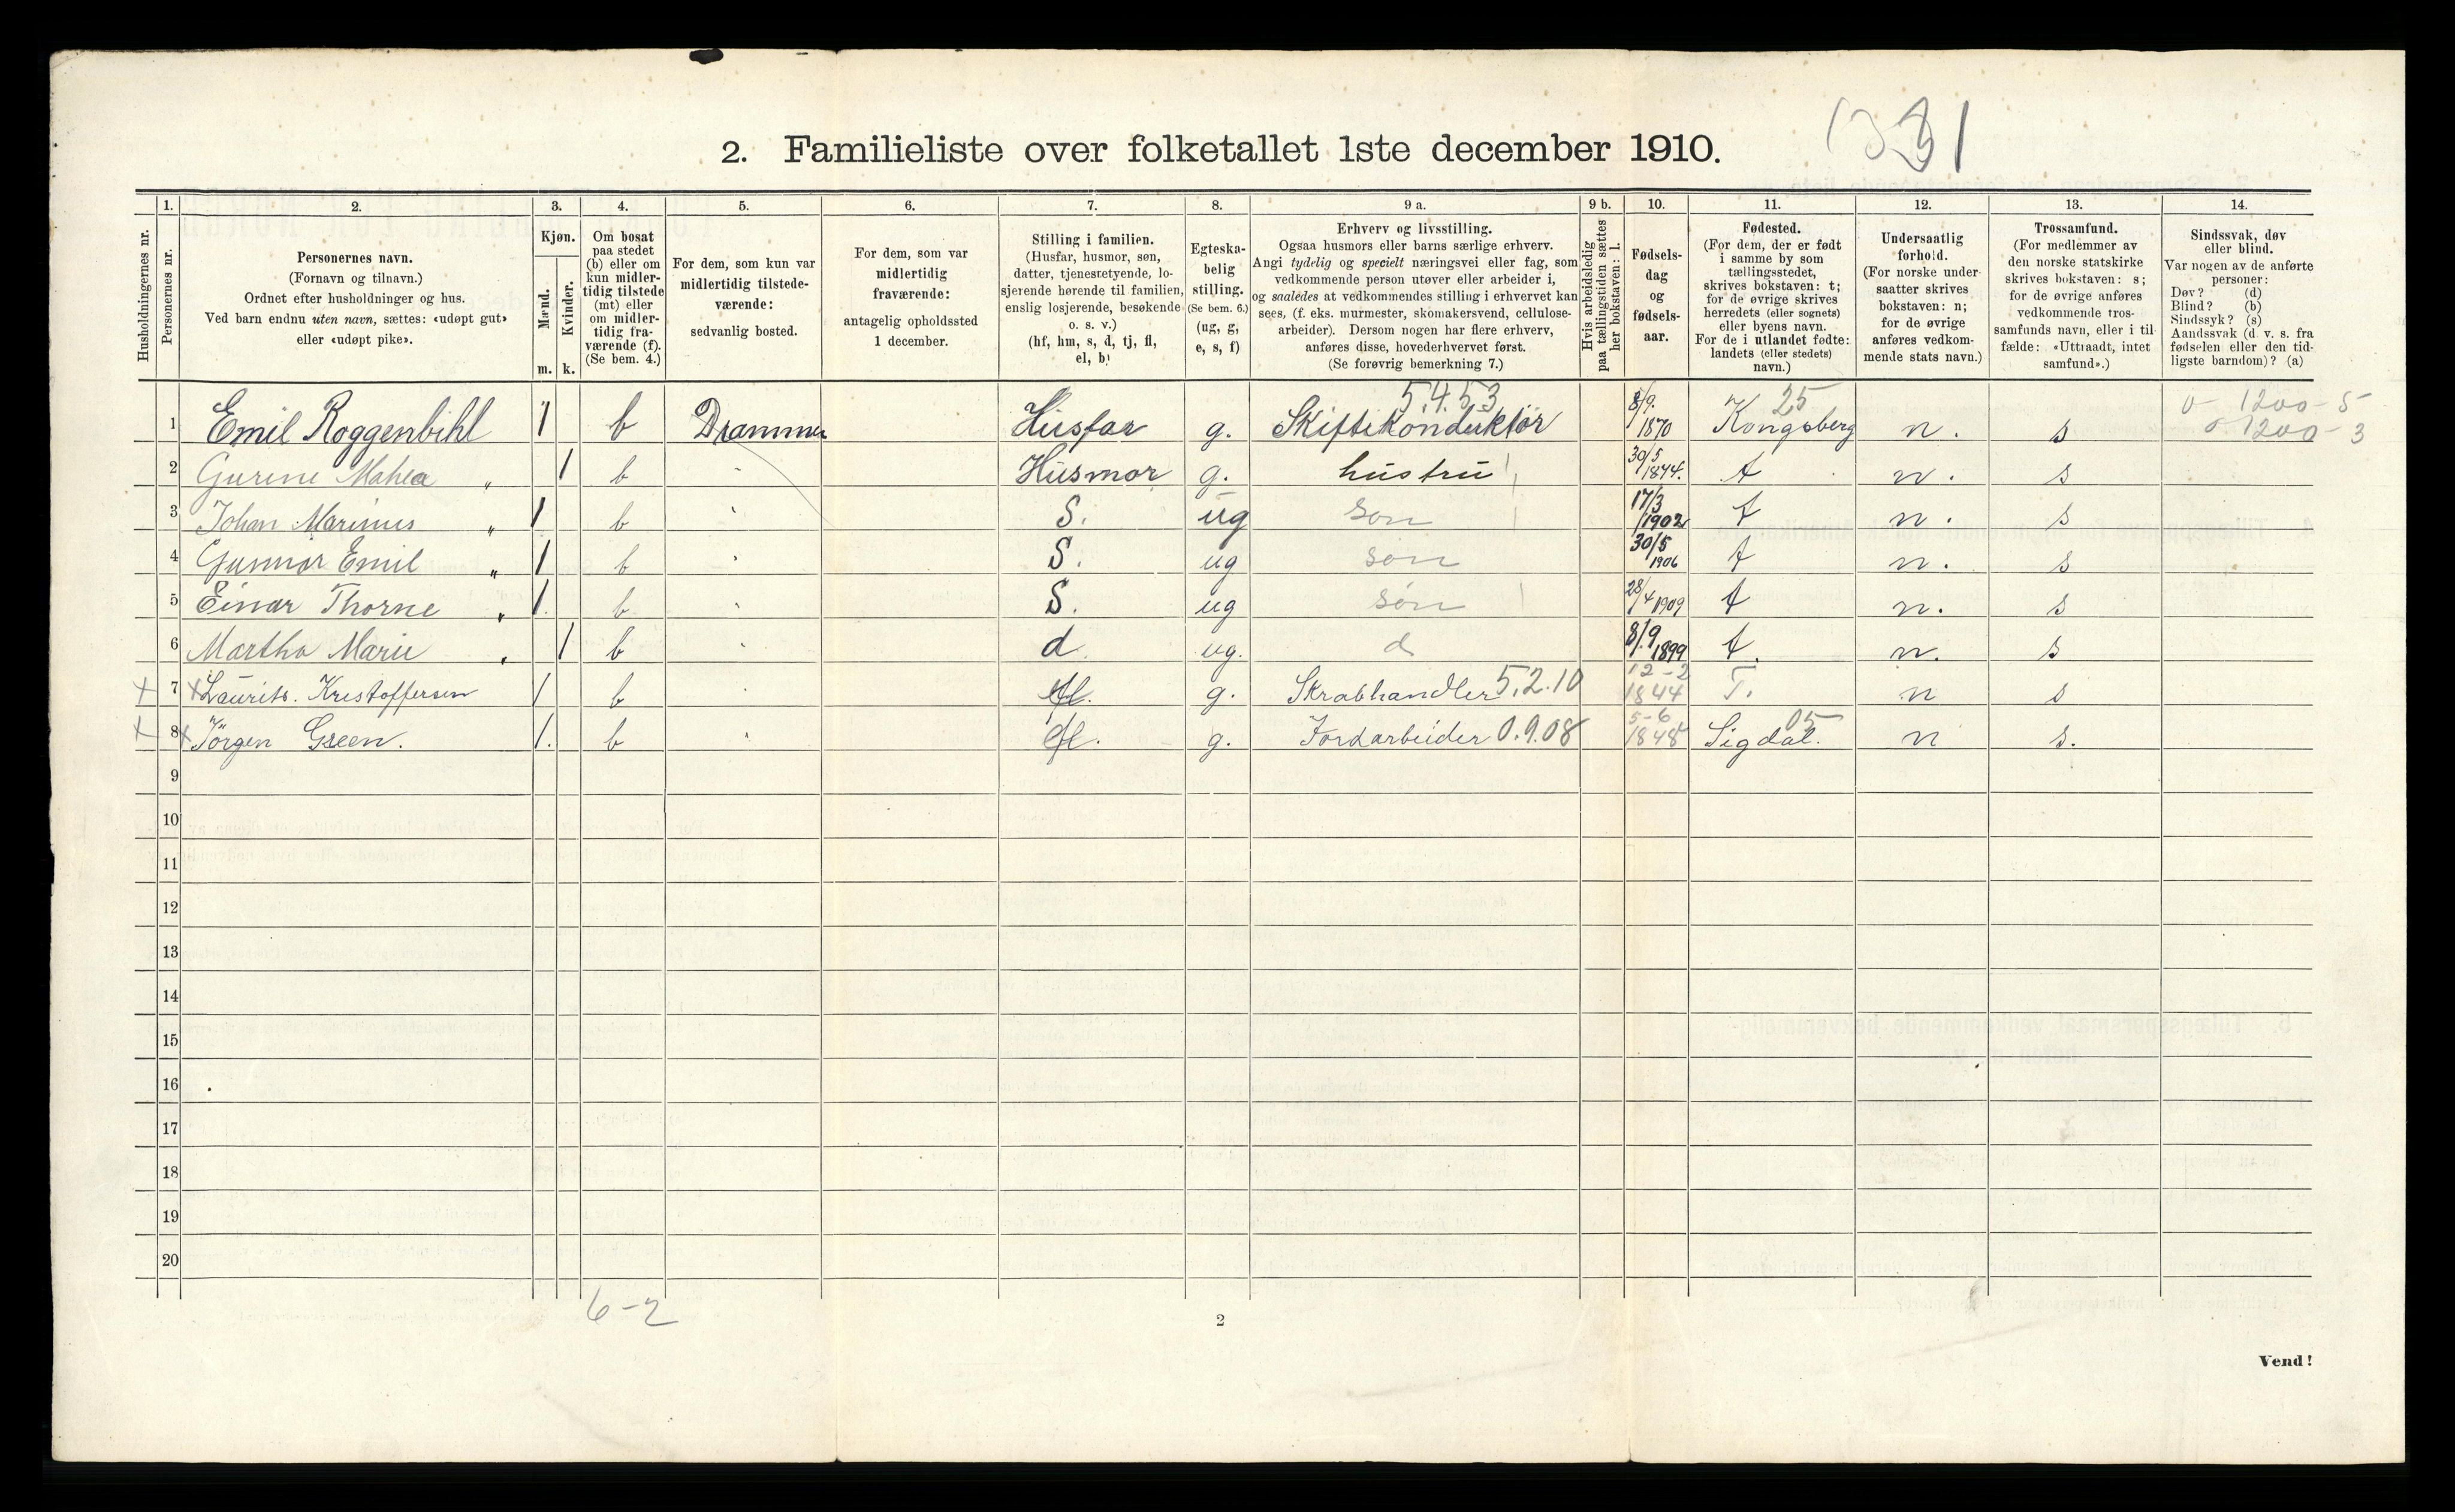 2. Familieliste over folketallet 1ste december 1910.
1331
1. 2. 3. 4. 5. 6. 7. 8. 9 a. 9 b. 10. 11. 12. 13. 14.
Husholdningernes nr.
Personernes nr.
Personernes navn.
(Fornavn og tilnavn.)
Ordnet efter husholdninger og hus.
Ved barn endnu uten navn, sættes: «udøpt gut»
eller «udøpt pike».
Kjøn.
Mænd.
Kvinder.
m. k.
Om bosat
paa stedet
(b) eller om
kun midler-
tidig tilstede
(mt) eller
om midler-
tidig fra-
værende (f).
(Se bem. 4.)
For dem, som kun var
midlertidig tilstede-
værende:
sedvanlig bosted.
For dem, som var
midlertidig
fraværende:
antagelig opholdssted
1 december.
Stilling i familien.
(Husfar, husmor, søn,
datter, tjenestetyende, lo-
sjerende hørende til familien,
enslig losjerende, besøkende
o. s. v.)
(hf, hm, s, d, tj, fl,
el, b)
Egteska-
belig
stilling.
(Se bem. 6.)
(ug, g,
e, s, f)
Erhverv og livsstilling.
Ogsaa husmors eller barns særlige erhverv.
Angi tydelig og specielt næringsvei eller fag, som
vedkommende person utøver eller arbeider i,
og saaledes at vedkommendes stilling i erhvervet kan
sees, (f. eks. murmester, skomakersvend, cellulose-
arbeider). Dersom nogen har flere erhverv,
anføres disse, hovederhvervet først.
(Se forøvrig bemerkning 7.)
Hvis arbeidsledig
paa tællingstiden sættes
her bokstaven: l.
Fødsels-
dag
og
fødsels-
aar.
Fødested.
(For dem, der er født
i samme by som
tællingsstedet,
skrives bokstaven: t;
for de øvrige skrives
herredets (eller sognets)
eller byens navn.
For de i utlandet fødte:
landets (eller stedets)
navn.)
Undersaatlig
forhold.
(For norske under-
saatter skrives
bokstaven: n;
for de øvrige
anføres vedkom-
mende stats navn.)
Trossamfund.
(For medlemmer av
den norske statskirke
skrives bokstaven: s;
for de øvrige anføres
vedkommende tros-
samfunds navn, eller i til-
fælde: «Uttraadt, intet
samfund».)
Sindssvak, døv
eller blind.
Var nogen av de anførte
personer:
Døv? (d)
Blind? (b)
Sindssyk? (s)
Aandssvak (d. v. s. fra
fødselen eller den tid-
ligste barndom)? (a)
5.4.53 25 0 - 1200 - 5
1 Emil Roggenbihl 1 b Drammen Husfar g. Skiftekonduktör 8/9. 1870 Kongsberg n. s 0 1200 - 3
2 Gurine Mahea " 1 b " Husmor g. hustru 30/5 1874. t n. s
3 Johan Marinus " 1 b " S. ug søn 17/3 1902 t n. s
4 Gunnar Emil " 1 b " S. ug søn 30/5 1906 t n. s
5 Einar Thorne " 1 b " S. ug søn 28/4 1909 t n. s
6 Martha Marie " 1 b " d ug. d 8/9 1899 t. n. s
+ 7 x Laurits. Kristoffersen 1 b " fl. g. Skrabhandler 5.2.10 12-2 1844 T. n s
+ 8 x Jörgen Green. 1. b " fl. g. Jordarbeider 0.9.08 5-6 1848 Sigdal. 05 n s.
9
10
11
12
13
14
15
16
17
18
19
20
6-2
2
Vend!